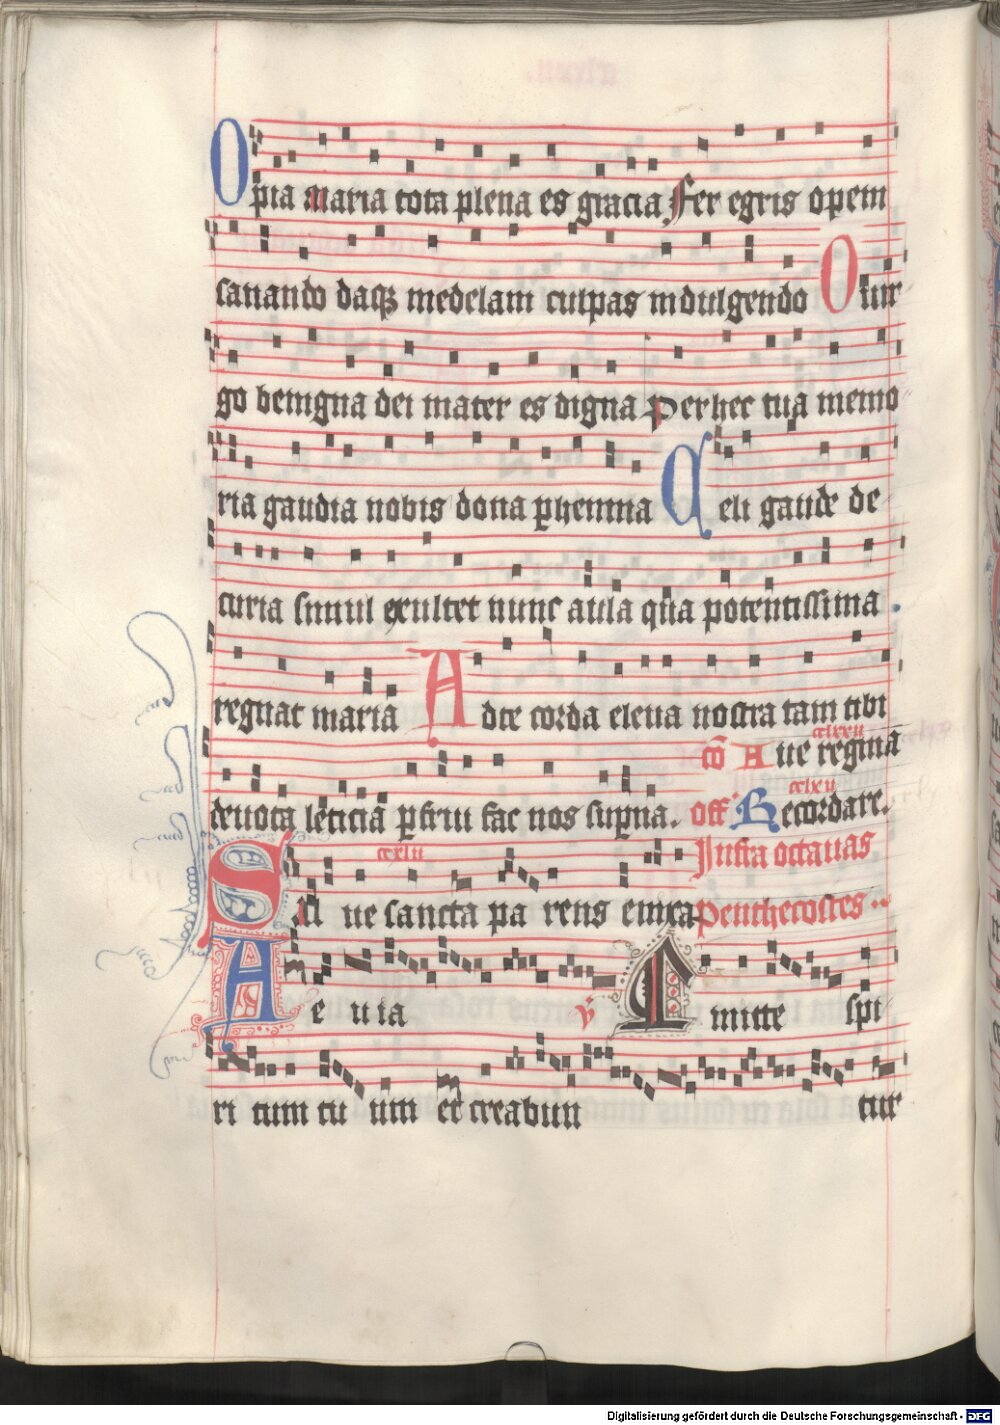 O pia maria tota plena es gracia Fer egris opem
sanando daq medelam culpas indulgendo O uir
go benigna dei mater es digna Per hec tua memo
ria gaudia nobis dona phennia C eli gaude de
curia simul exultet nunc aula qua potentissima
regnat maria A dte corda eleua nostra tam tibi
cō A ue regina
cclxxii
deuota leticia pfrui fac nos supna. off R ecordare.
cclxv
Infra octauas
ccxlii
S al ue sancta pa rens enixa penthecostes
A e u ia v E mitte spi
ri tum tu um et creabun tur
Digitalisierung gefördert durch die Deutsche Forschungsgemeinschaft - DFG